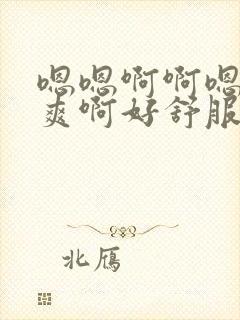 嗯嗯啊啊嗯
爽啊好舒服
北雁